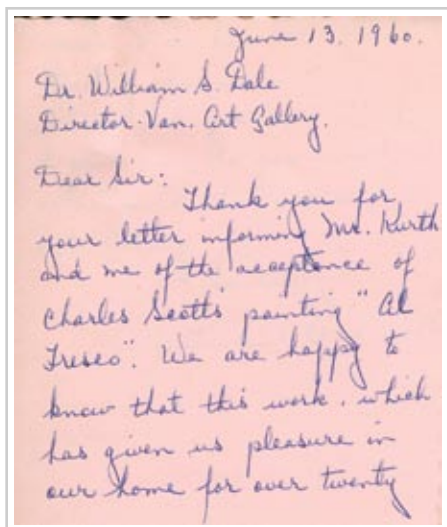 June 13, 1960.
Dr. William S. Dale
Director. Van. Art Gallery.
Dear Sir:
Thank you for
your letter informing Mr. Kurth
and me of the acceptance of
Charles Scott's painting "Al
Fresco". We are happy to
know that this work, which
has given us pleasure in
our home for over twenty